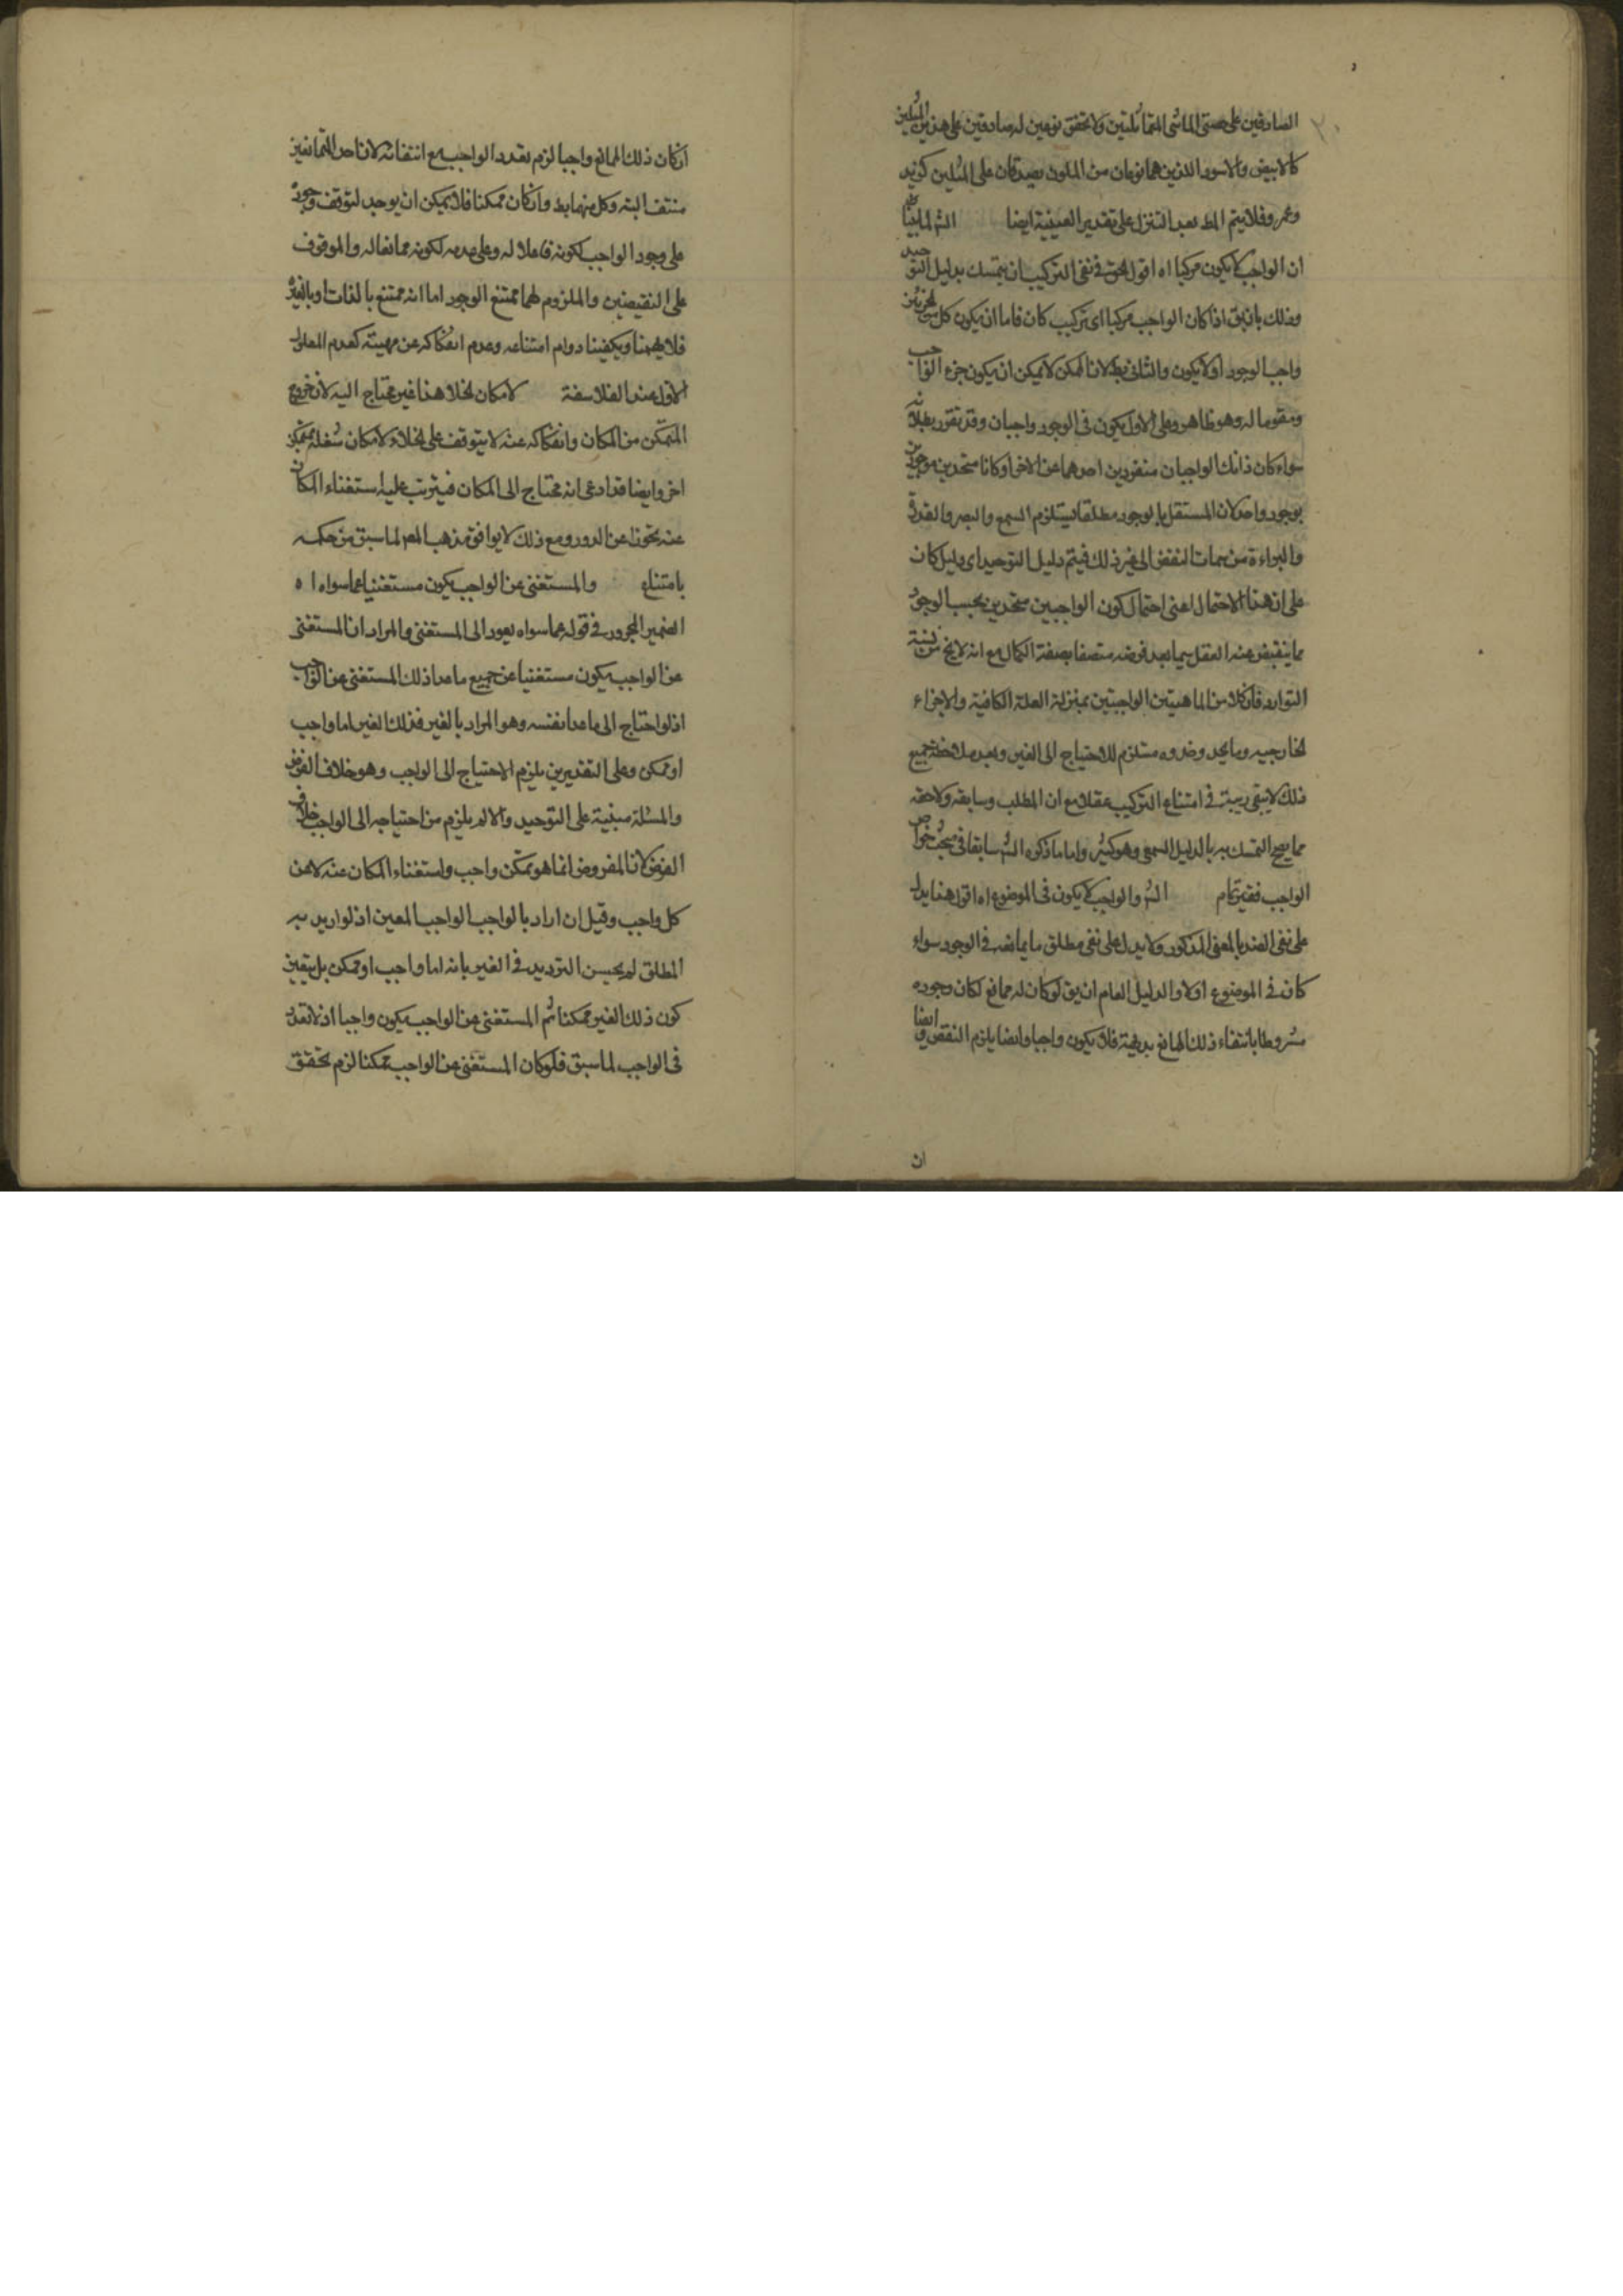 الصادقين على حصتى الماشى المتماثلتين ولا تحقق نوعين له صادقين على هذين المثلين
كالابيض والاسود الذين هما نوعان من الملون يصدقان على المثلين كزيد
وعمرو فلا يتم المط بعد التنزل على تقدير العينية ايضا الش لما بينا
ان الواجب لا يكون مركبا اه اقول الحق فى نفى التركيب ان يتمسك بدليل التوحيد
وذلك بان يق اذا كان الواجب مركبا اى تركيب كان فاما ان يكون كل من الجزئين
واجب الوجود اولا يكون والثانى بط لان الممكن لا يمكن ان يكون جزء الواجب
ومقوما له وهو ظاهر وعلى الاول يكون فى الوجود واجبان وقد تقرر بطلانه
سواء كان ذانك الواجبان منفردين احدهما عن الاخر او كانا متحدين موجودين
بوجود واحد لان المستقل بالوجود مطلقا يستلزم السمع والبصر والقدرة
والبراءة من سمات النقص الى غير ذلك فيتم دليل التوحيد اى دليل كان
على ان هذا الاحتمال اعنى احتمال كون الواجبين متحدين بحسب الوجود
مما ينقبض عنه العقل سيما بعد فرضه متصفا بصفة الكمال مع انه لا يخ من
التوارد فان كلا من الماهيتين الواجبتين بمنزلة العلة الكافية والاجزاء
الخارجيه وما يحد وحدوه مستلزم للاحتياج الى الغير وبعد ملاحظة جميع
ذلك لا يبقى ريبة فى امتناع التركيب عقلا مع ان المطلب وسابقه ولاحقه
مما يصح التمسك به بالدليل السمعى وهو كثير واما ما ذكره الش سابقا فى مبحث خواص
الواجب فغير تمام الش والواجب لا يكون فى الموضوع اه اقول هذا يدل
على نفى الضد بالمعنى المذكور ولا يدل على نفى مطلق ما يمانعه فى الوجود سواء
كان فى الموضوع اولا والدليل العام ان يق لو كان له ممانع لكان وجوده
مشروطا بانتفاء ذلك المانع بديهة فلا يكون واجبا وايضا يلزم النقص وايضا
ان
ان كان ذلك المانع واجبا لزم تعدد الواجب مع انتفائه لان احد المتمانعين
منتف البته وكل منهما بط وان كان ممكنا فلا يمكن ان يوجد لتوقف وجوده
على وجود الواجب لكونه فاعلا له وعلى عدمه لكونه ممانعا له والموقوف
على النقيضين والملزوم لهما ممتنع الوجود اما انه ممتنع بالذات او بالغير
فلا يهمنا ويكفينا دوام امتناعه وعدم انفكاكه عن مهيته كعدم المعلول
الاول عند الفلاسفة لامكان الخلا هذا غير محتاج اليه لان خروج
المتمكن من المكان وانفكاكه عنه لا يتوقف على الخلاء لامكان شغله بمتمكن
اخر وايضا قد ادعى انه محتاج الى المكان فيترتب عليه استغناء المكان
عنه تحرزا عن الدور ومع ذلك لا يوافق مذهب المص لما سبق من حكمه
بامتناع والمستغنى عن الواجب يكون مستغنيا عما سواه اه
الضمير المجرور فى قوله عما سواه يعود الى المستغنى والمراد ان المستغنى
عن الواجب يكون مستغنيا عن جميع ما عدا ذلك المستغنى عن الواجب
اذ لو احتاج الى ما عدا نفسه وهو المراد بالغير فذلك الغير اما واجب
او ممكن وعلى التقديرين يلزم الاحتياج الى الواجب وهو خلاف الفرض
والمسئلة مبنية على التوحيد والا لم يلزم من احتياجه الى الواجب خلاف
الفرض لان المفروض انما هو تمكن واجب واستغناء المكان عنه لا عن
كل واجب وقيل ان اراد بالواجب الواجب المعين اذ لو اريد به
المطلق لم يحسن الترديد فى الغير بانه اما واجب او ممكن بل يتعين
كون ذلك الغير ممكنا ثم المستغنى عن الواجب يكون واجبا اذ لا تعدد
فى الواجب لما سبق فلو كان المستغنى عن الواجب ممكنا لزم تحقق